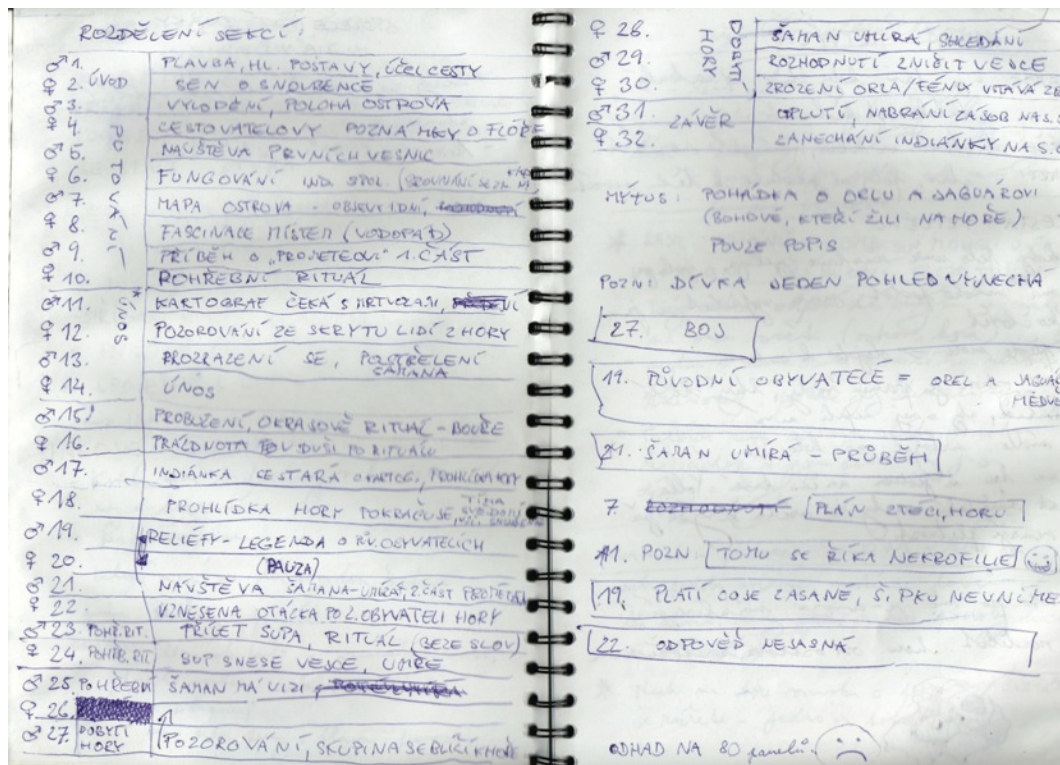 ROZDĚLENÍ SEKCÍ:
♂ 1. PLAVBA, HL. POSTAVY, ÚČEL CESTY
♀ 2. ÚVOD SEN O SNOUBENCE
♂ 3. VYLODĚNÍ, POLOHA OSTROVA
♀ 4. CESTOVATELOVY POZNÁMKY O FLÓŘE
♂ 5. NÁVŠTĚVA PRVNÍCH VESNIC
♀ 6. FUNGOVÁNÍ IND. SPOL. (SROVNÁNÍ
♂ 7. MAPA OSTROVA - OBJEVY, IDNÍ,
♀ 8. FASCINACE MÍSTEM (VODOPÁD)
♂ 9. PŘÍBĚH O „PROMETEOVI“ 1. ČÁST
♀ 10. POHŘEBNÍ RITUÁL
♂ 11. KARTOGRAF ČEKÁ S MRTVOLAMI,
♀ 12. ÚNOS POZOROVÁNÍ ZE SKRYTU LIDÍ Z HORY
♂ 13. PROZRAZENÍ SE, POSTŘELENÍ ŠAMANA
♀ 14. ÚNOS
♂ 15. PROBUZENÍ, OKRASOVĚ RITUÁL - BOUŘE
♀ 16. PRÁZDNOTA V DUŠI PO RITUÁLU
♂ 17. INDIÁNKA SE STARÁ O KARTOG., PROHLÍDKA HORY
♀ 18. PROHLÍDKA HORY POKRAČUJE,
♂ 19. RELIÉFY - LEGENDA O PŮV. OBYVATELÍCH
♀ 20. (PAUZA)
♂ 21. NÁVŠTĚVA ŠAMANA - UMÍRÁ, 2. ČÁST PROMETEA
♀ 22. VZNESENA OTÁZKA PO 2. OBYVATELI HORY
♂ 23. POHŘ. RIT. PŘÍLET SUPA, RITUÁL (BEZE SLOV)
♀ 24. POHŘEB. RIT SUP SNESE VEJCE, UMŘE
♂ 25. POHŘEBNÍ ŠAMAN MÁ VIZI
♀ 26.
♂ 27. DOBYTÍ HORY POZOROVÁNÍ, SKUPINA SE BLÍŽÍ K HOŘE
♀ 28. DOBYTÍ HORY ŠAMAN UMÍRÁ, SHLEDÁNÍ
♂ 29. ROZHODNUTÍ ZNIČIT VEJCE
♀ 30. ZROZENÍ ORLA/FÉNIX VSTÁVÁ ZE
♂ 31 ZÁVĚR ODPLUTÍ, NABRÁNÍ ZÁSOB NA S.
♀ 32. ZANECHÁNÍ INDIÁNKY NA S.
MÝTUS: POHÁDKA O ORLU A JAGUÁROVI
(BOHOVÉ, KTEŘÍ ŽILI NA HOŘE.)
POUZE POPIS
POZN: DÍVKA JEDEN POHLED VYNECHÁ
27. BOJ
19. PŮVODNÍ OBYVATELÉ = OREL A JAGUÁR
21. ŠAMAN UMÍRÁ - PRŮBĚH
7. PLÁN ZTÉCI, HORU
11. POZN: TOMU SE ŘÍKÁ NEKROFILIE
19. PLATÍ CO JE ZASANÉ, ŠIPKU NEVNÍMEJ
22. ODPOVĚĎ NEJASNÁ
ODHAD NA 80 panelů.